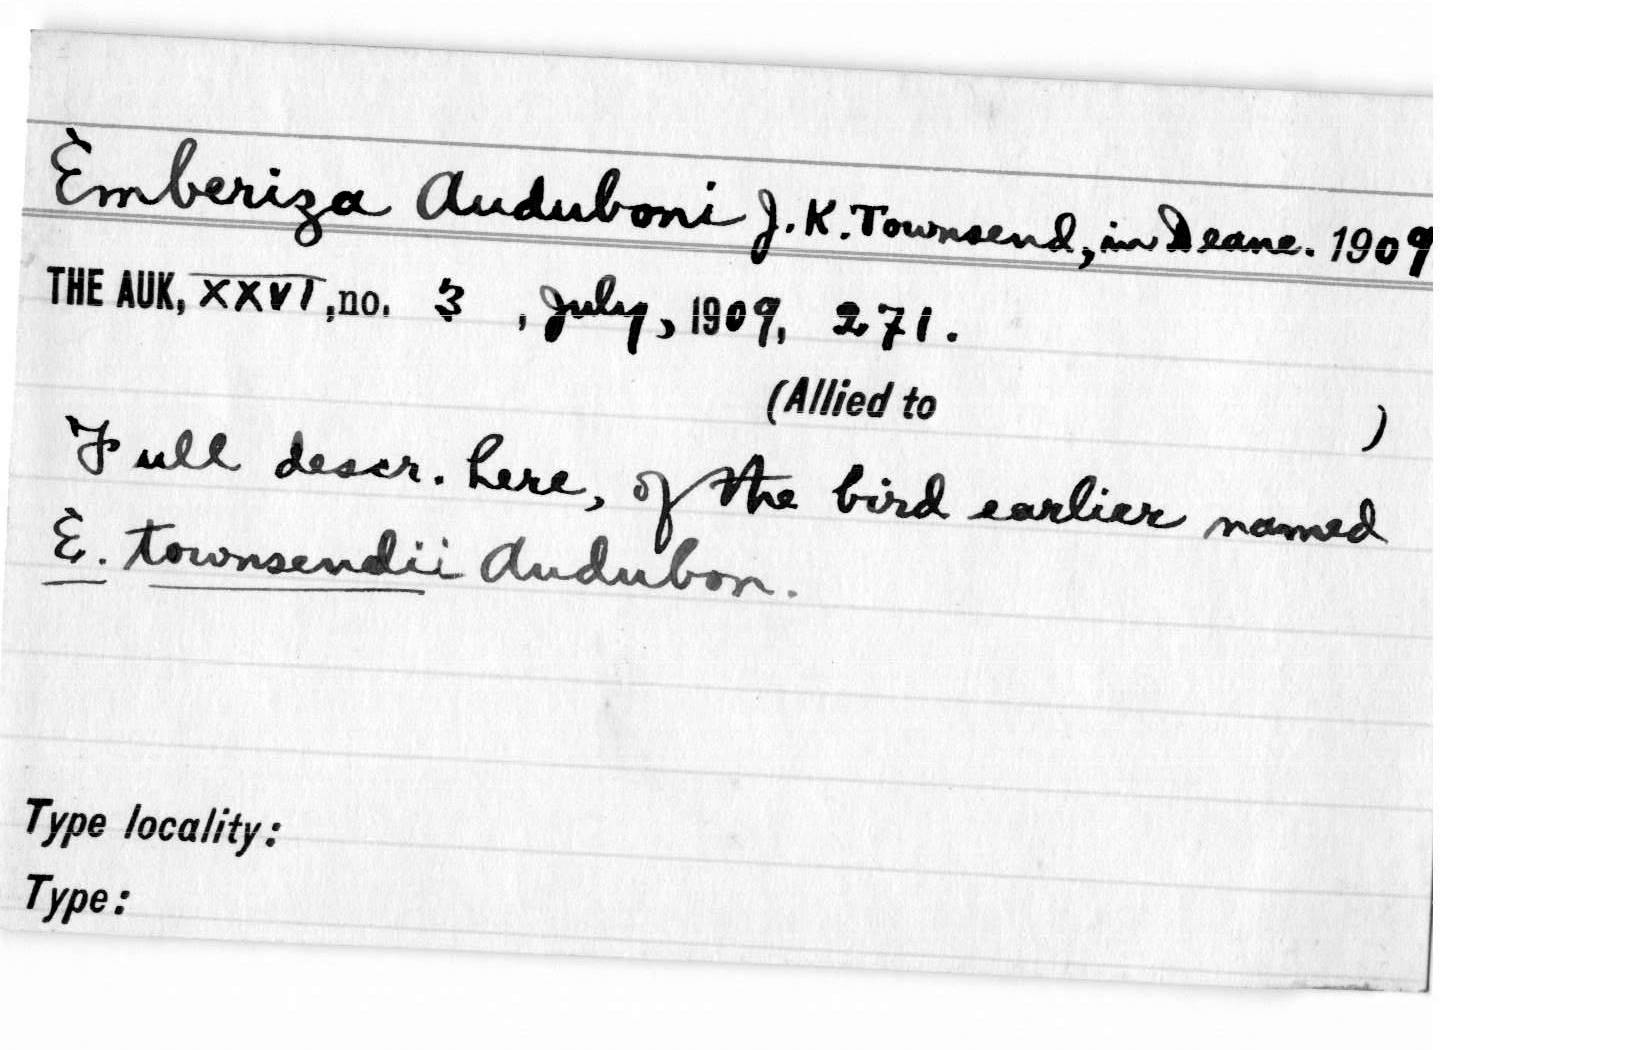 Emberiza Auduboni J. K. Townsend, in Deane. 1909
THE AUK, XXVI, no. 3, July, 1909, 271.
(Allied to )
Full descr. here, of the bird earlier named
E. townsendii Audubon.
Type locality:
Type: